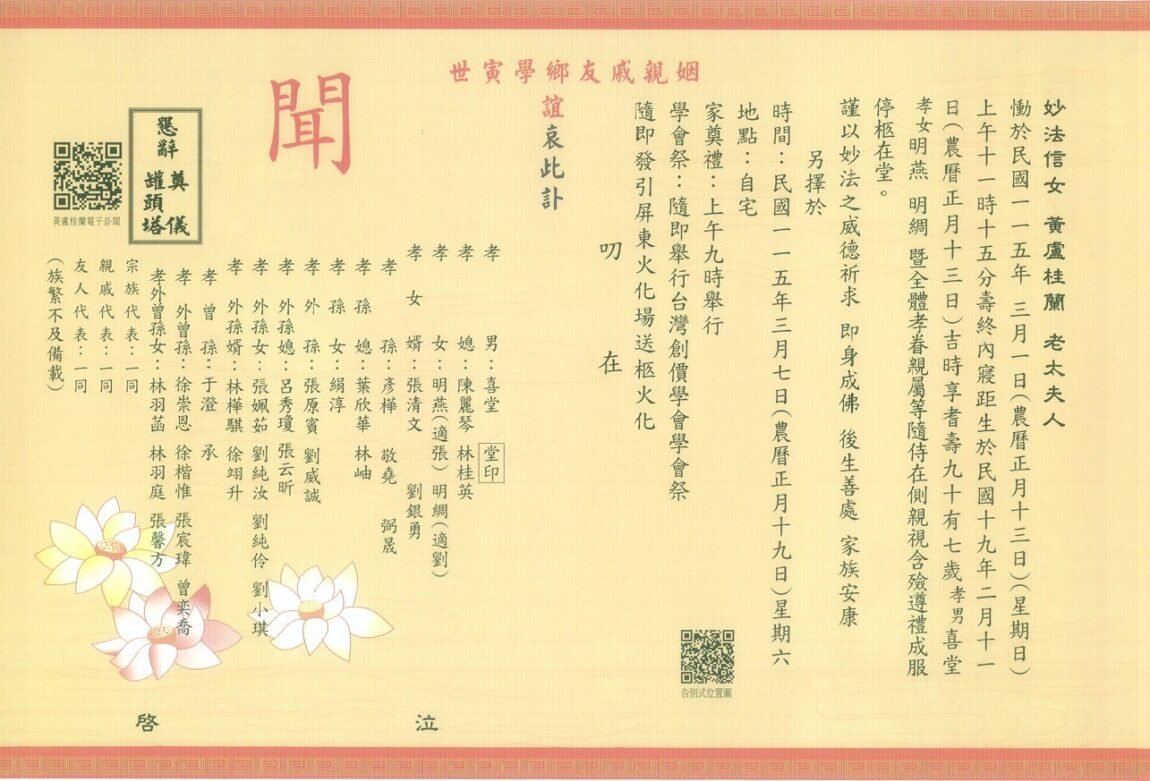 妙法信女 黃盧桂蘭 老太夫人
慟於民國一一五年 三月一日(農曆正月十三日)(星期日)
上午十一時十五分壽終內寢距生於民國十九年二月十一
日(農曆正月十三日)吉時享耆壽九十有七歲孝男喜堂
孝女明燕 明綢 暨全體孝眷親屬等隨侍在側親視含殮遵禮成服
停柩在堂。
謹以妙法之威德祈求 即身成佛 後生善處 家族安康
另擇於
時間：民國一一五年三月七日(農曆正月十九日)星期六
地點：自宅
家奠禮：上午九時舉行
學會祭：隨即舉行台灣創價學會學會祭
隨即發引屏東火化場送柩火化
告別式位置圖
叨 在
姻親戚友鄉學寅世
誼哀此訃
聞
孝 男：喜堂 堂印
孝 媳：陳麗琴 林桂英
孝 女：明燕(適張) 明綢(適劉)
孝 女 婿：張清文 劉銀勇
孝 孫：彥樺 敬堯 弼晟
孝 孫 媳：葉欣華 林岫
孝 孫 女：絹淳
孝 外 孫：張原賓 劉威誠
孝 外孫 媳：呂秀瓊 張云昕
孝 外孫 女：張姵茹 劉純汝 劉純伶 劉小琪
孝 外孫 婿：林樺騏 徐翊升
孝 曾 孫：于澄 承
孝 外曾孫：徐崇恩 徐楷惟 張宸瑋 曾奕喬
孝外曾孫女：林羽菡 林羽庭 張馨方
宗族代表：一同
親戚代表：一同
友人代表：一同
(族繁不及備載)
泣 啓
懇辭 奠儀 罐頭塔
黃盧桂蘭電子訃聞